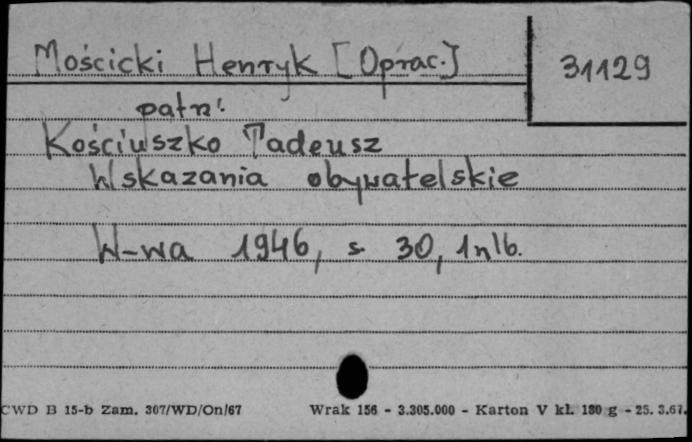 Mościcki Henryk [Oprac.]
31129
patrz:
Kościuszko Tadeusz
Wskazania obywatelskie
W-wa 1946, s. 30, 1 nlb.
CWD B 15-b Zam. 307/WD/On/67 Wrak 156 - 3.305.000 - Karton V kl. 180 g - 25.3.67.